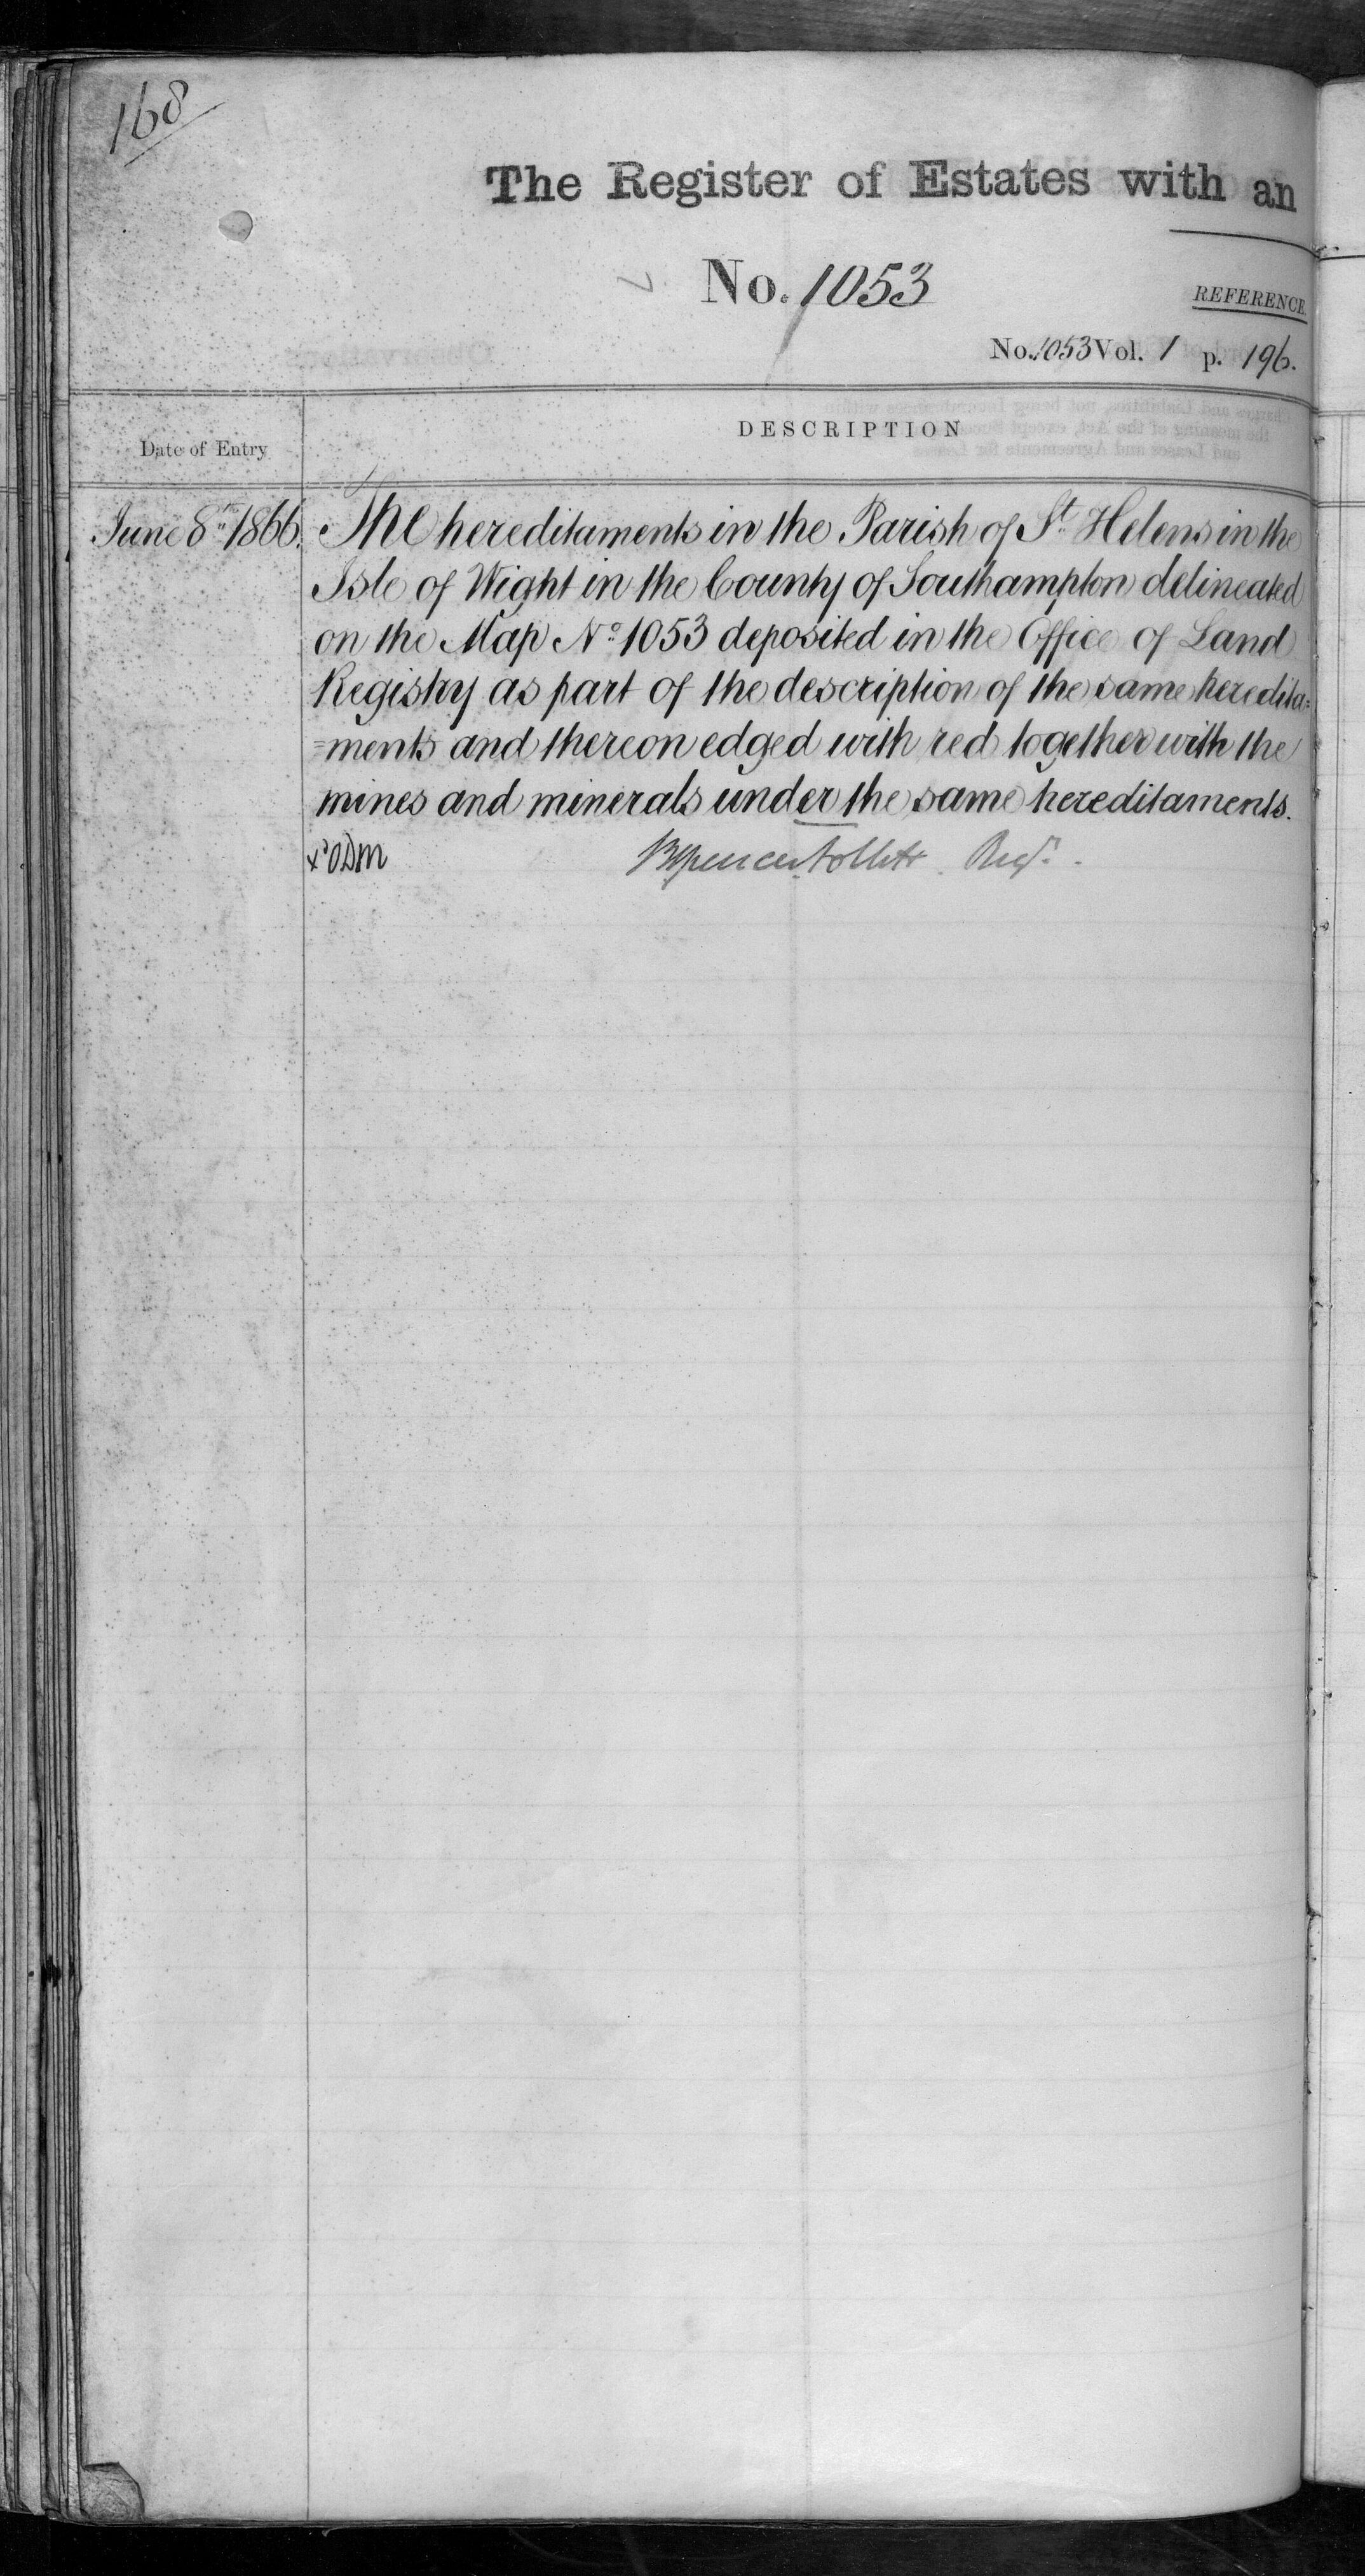 168
The Register of Estates with an
No. 1053
REFERENCE
No. 1053 Vol. 1 p. 196.
Date of Entry
DESCRIPTION
June 8th 1866. The hereditaments in the Parish of St. Helens in the
Isle of Wight in the County of Southampton delineated
on the Map No. 1053 deposited in the Office of Land
Registry as part of the description of the same heredita=
=ments and thereon edged with red together with the
mines and minerals under the same hereditaments.
Brent Spencer Follett Regr.